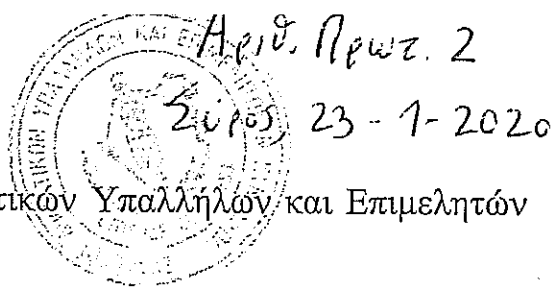 Αριθ. Πρωτ. 2
Σύρος, 23-1-2020
τικών Υπαλλήλων και Επιμελητών